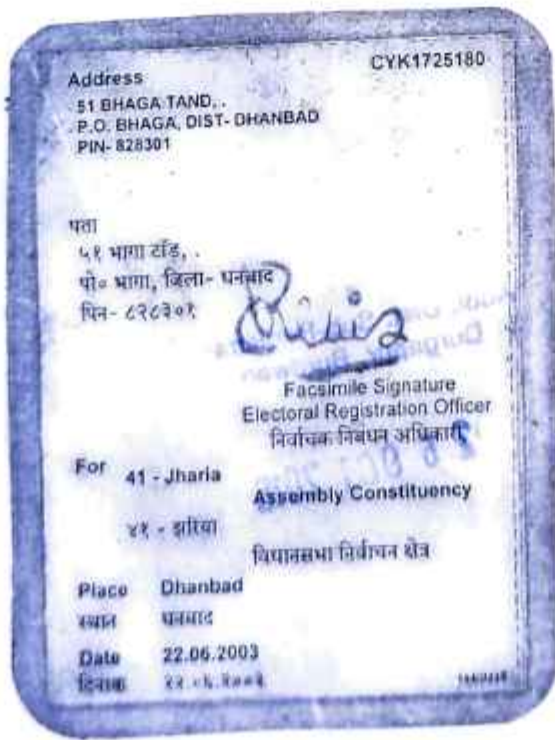 CYK1725180
Address
51 BHAGA TAND, .
P.O. BHAGA, DIST- DHANBAD
PIN- 828301
पता
५१ भागा टाँड, .
पो॰ भागा, जिला- धनबाद
पिन- ८२८३०१
Facsimile Signature
Electoral Registration Officer
निर्वाचक निबंधन अधिकारी
For 41 - Jharia
Assembly Constituency
४१ - झरिया
विधानसभा निर्वाचन क्षेत्र
Place Dhanbad
स्थान धनबाद
Date 22.06.2003
दिनांक २२.०६.२००३